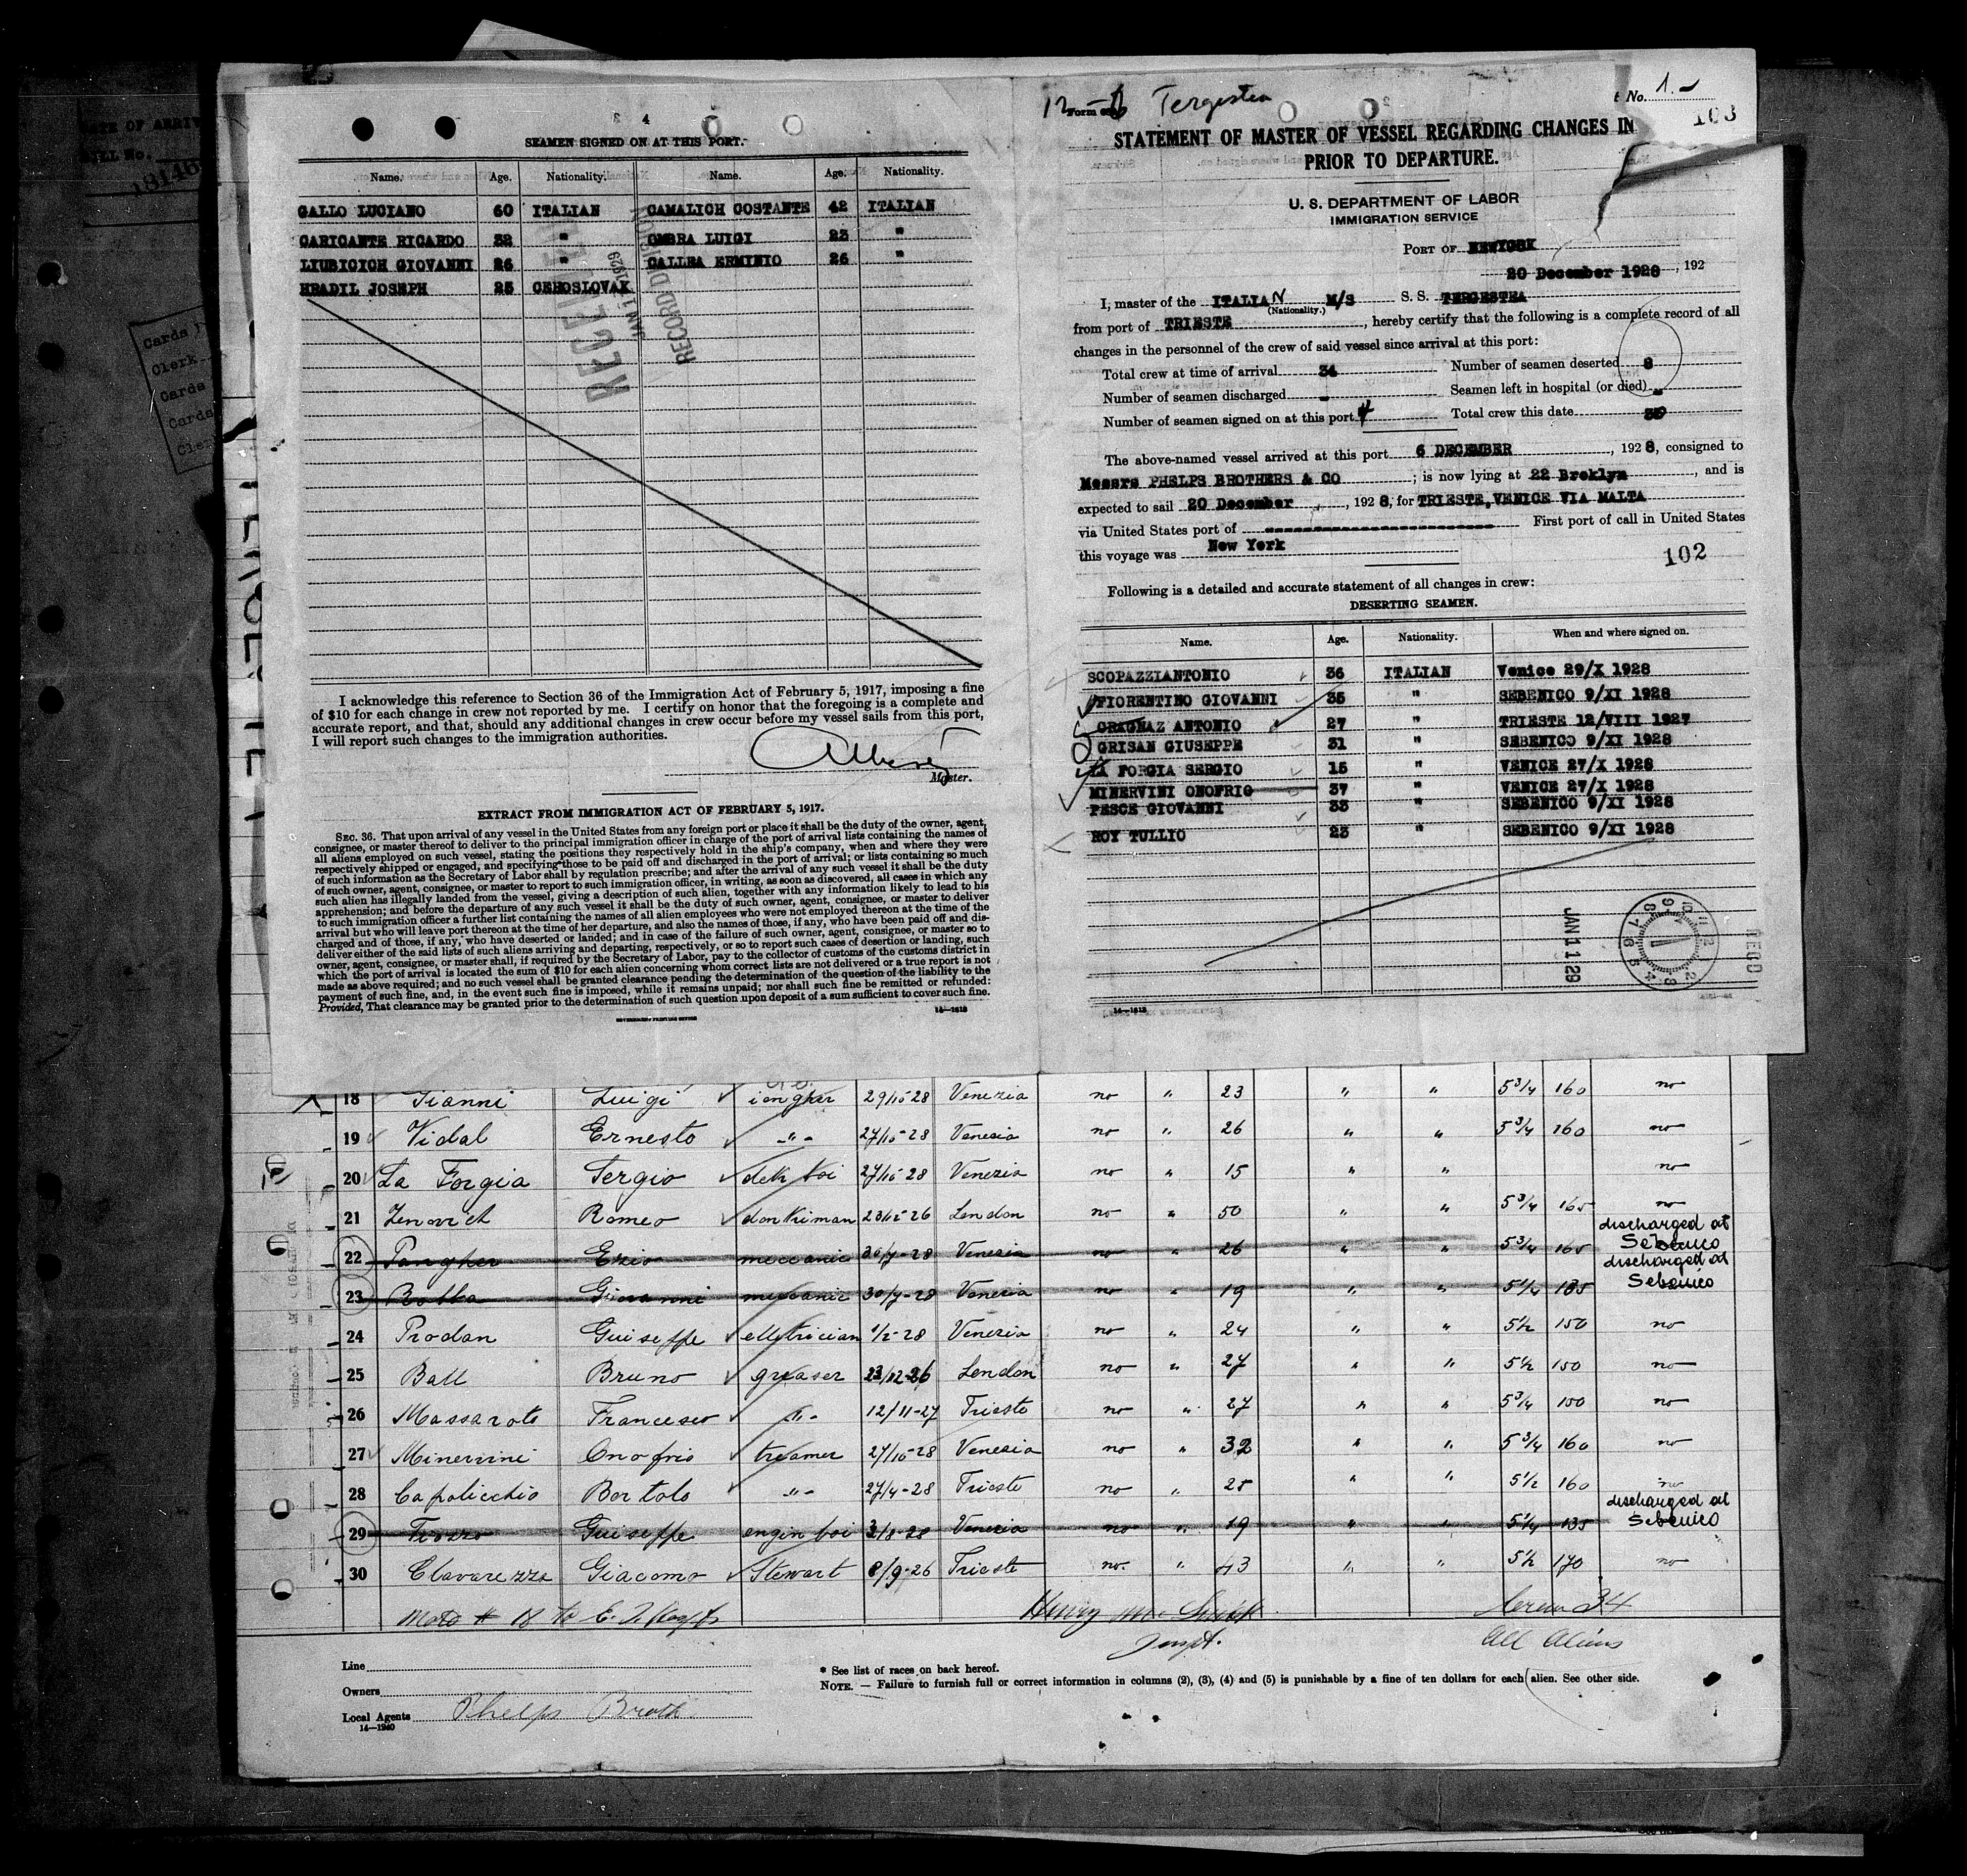 DATE OF ARRIV
BILL No.
18146
Cards
Clerk
Cards
Cards
Cler
4
SEAMEN SIGNED ON AT THIS PORT.
Name. Age. Nationality. Name. Age. Nationality.
GALLO LUCIANO 60 ITALIAN CAMALICH COSTANTE 42 ITALIAN
CARICANTE RICARDO 32 " OMBRA LUIGI 23 "
LIUBICICH GIOVANNI 26 " GALLEA ERMINIO 26 "
HRADIL JOSEPH 25 CEHOSLOVAK
RECEIVED
JAN 1 1929
RECORD DIVISION
I acknowledge this reference to Section 36 of the Immigration Act of February 5, 1917, imposing a fine
of $10 for each change in crew not reported by me. I certify on honor that the foregoing is a complete and
accurate report, and that, should any additional changes in crew occur before my vessel sails from this port,
I will report such changes to the immigration authorities.
Master.
EXTRACT FROM IMMIGRATION ACT OF FEBRUARY 5, 1917.
SEC. 36. That upon arrival of any vessel in the United States from any foreign port or place it shall be the duty of the owner, agent,
consignee, or master thereof to deliver to the principal immigration officer in charge of the port of arrival lists containing the names of
all aliens employed on such vessel, stating the positions they respectively hold in the ship's company, when and where they were
respectively shipped or engaged, and specifying those to be paid off and discharged in the port of arrival; or lists containing so much
of such information as the Secretary of Labor shall by regulation prescribe; and after the arrival of any such vessel it shall be the duty
of such owner, agent, consignee, or master to report to such immigration officer, in writing, as soon as discovered, all cases in which any
such alien has illegally landed from the vessel, giving a description of such alien, together with any information likely to lead to his
apprehension; and before the departure of any such vessel it shall be the duty of such owner, agent, consignee, or master to deliver
to such immigration officer a further list containing the names of all alien employees who were not employed thereon at the time of the
arrival but who will leave port thereon at the time of her departure, and also the names of those, if any, who have been paid off and dis-
charged and of those, if any, who have deserted or landed; and in case of the failure of such owner, agent, consignee, or master so to
deliver either of the said lists of such aliens arriving and departing, respectively, or so to report such cases of desertion or landing, such
owner, agent, consignee, or master shall, if required by the Secretary of Labor, pay to the collector of customs of the customs district in
which the port of arrival is located the sum of $10 for each alien concerning whom correct lists are not delivered or a true report is not
made as above required; and no such vessel shall be granted clearance pending the determination of the question of the liability to the
payment of such fine, and, in the event such fine is imposed, while it remains unpaid; nor shall such fine be remitted or refunded:
Provided, That clearance may be granted prior to the determination of such question upon deposit of a sum sufficient to cover such fine.
GOVERNMENT PRINTING OFFICE 14—1813
12-6 Tergestea
Form
No. 1.-
103
STATEMENT OF MASTER OF VESSEL REGARDING CHANGES IN
PRIOR TO DEPARTURE.
U. S. DEPARTMENT OF LABOR
IMMIGRATION SERVICE
PORT OF NEWYORK
20 December 1928, 192
I, master of the ITALIAN M/S S. S. TERGESTEA
(Nationality.)
from port of TRIESTE, hereby certify that the following is a complete record of all
changes in the personnel of the crew of said vessel since arrival at this port:
Total crew at time of arrival 34 Number of seamen deserted 8
Number of seamen discharged - Seamen left in hospital (or died) -
Number of seamen signed on at this port Total crew this date
The above-named vessel arrived at this port 6 DECEMBER, 1928, consigned to
Messrs PHELPS BROTHERS & CO; is now lying at 22 Broklyn, and is
expected to sail 20 December, 1928, for TRIESTE,VENICE VIA MALTA
via United States port of First port of call in United States
this voyage was New York
102
Following is a detailed and accurate statement of all changes in crew:
DESERTING SEAMEN.
Name. Age. Nationality. When and where signed on.
SCOPAZZIANTONIO 36 ITALIAN Venice 29/X 1928
FIORENTINO GIOVANNI 35 " SEBENICO 9/XI 1928
GRAGNAZ ANTONIO 27 " TRIESTE 12/VIII 1927
GRISAN GIUSEPPE 31 " SEBENICO 9/XI 1928
LA FORGIA SERGIO 15 " VENICE 27/X 1928
MINERVINI ONOFRIO 37 " VENICE 27/X 1928
PESCE GIOVANNI 33 " SEBENICO 9/XI 1928
ROY TULLIO 23 " SEBENICO 9/XI 1928
JAN 11 29
RECD
14—1813
18 Gianni Luigi 29/10-28 Venezia no " 23 " " 5 3/4 160 no
19 Vidal Ernesto -"- 27/10-28 Venezia no " 26 " " 5 3/4 160 no
20 La Forgia Sergio dek boi 27/10-28 Venezia no " 15 " " no
21 Zenovich Romeo donkiman 23/12-26 London no " 50 " " 5 3/4 165 no
22 Pangher Ezio meccanic 30/7-28 Venezia no " 26 " " 5 3/4 165 discharged at Sebenico
23 Botta Giovanni meccanic 30/7-28 Venezia no " 19 " " 5 1/4 135 discharged at Sebenico
24 Prodan Guiseppe elletrician 1/2-28 Venezia no " 24 " " 5 1/2 150 no
25 Ball Bruno greaser 23/12-26 London no " 27 " " 5 1/2 150 no
26 Massaroto Francesco "- 12/11-27 Trieste no " 27 " " 5 3/4 150 no
27 Minervini Onofrio treamer 27/10-28 Venezia no " 32 " " 5 3/4 160 no
28 Capolicchio Bortolo -"- 27/4-28 Trieste no " 25 " " 5 1/2 160 no
29 Guiseppe engin boi 3/8-28 Venezia no " 19 " " 5 1/4 135 discharged at Sebenico
30 Clavarezza Giacomo Stewart 8/9-26 Trieste no. " 43 " " 5 1/2 170 no
Crew 34
Inspt.
All Aliens
Line
Owners
Local Agents Phelps Broth
14—1240
* See list of races on back hereof.
NOTE. — Failure to furnish full or correct information in columns (2), (3), (4) and (5) is punishable by a fine of ten dollars for each alien. See other side.